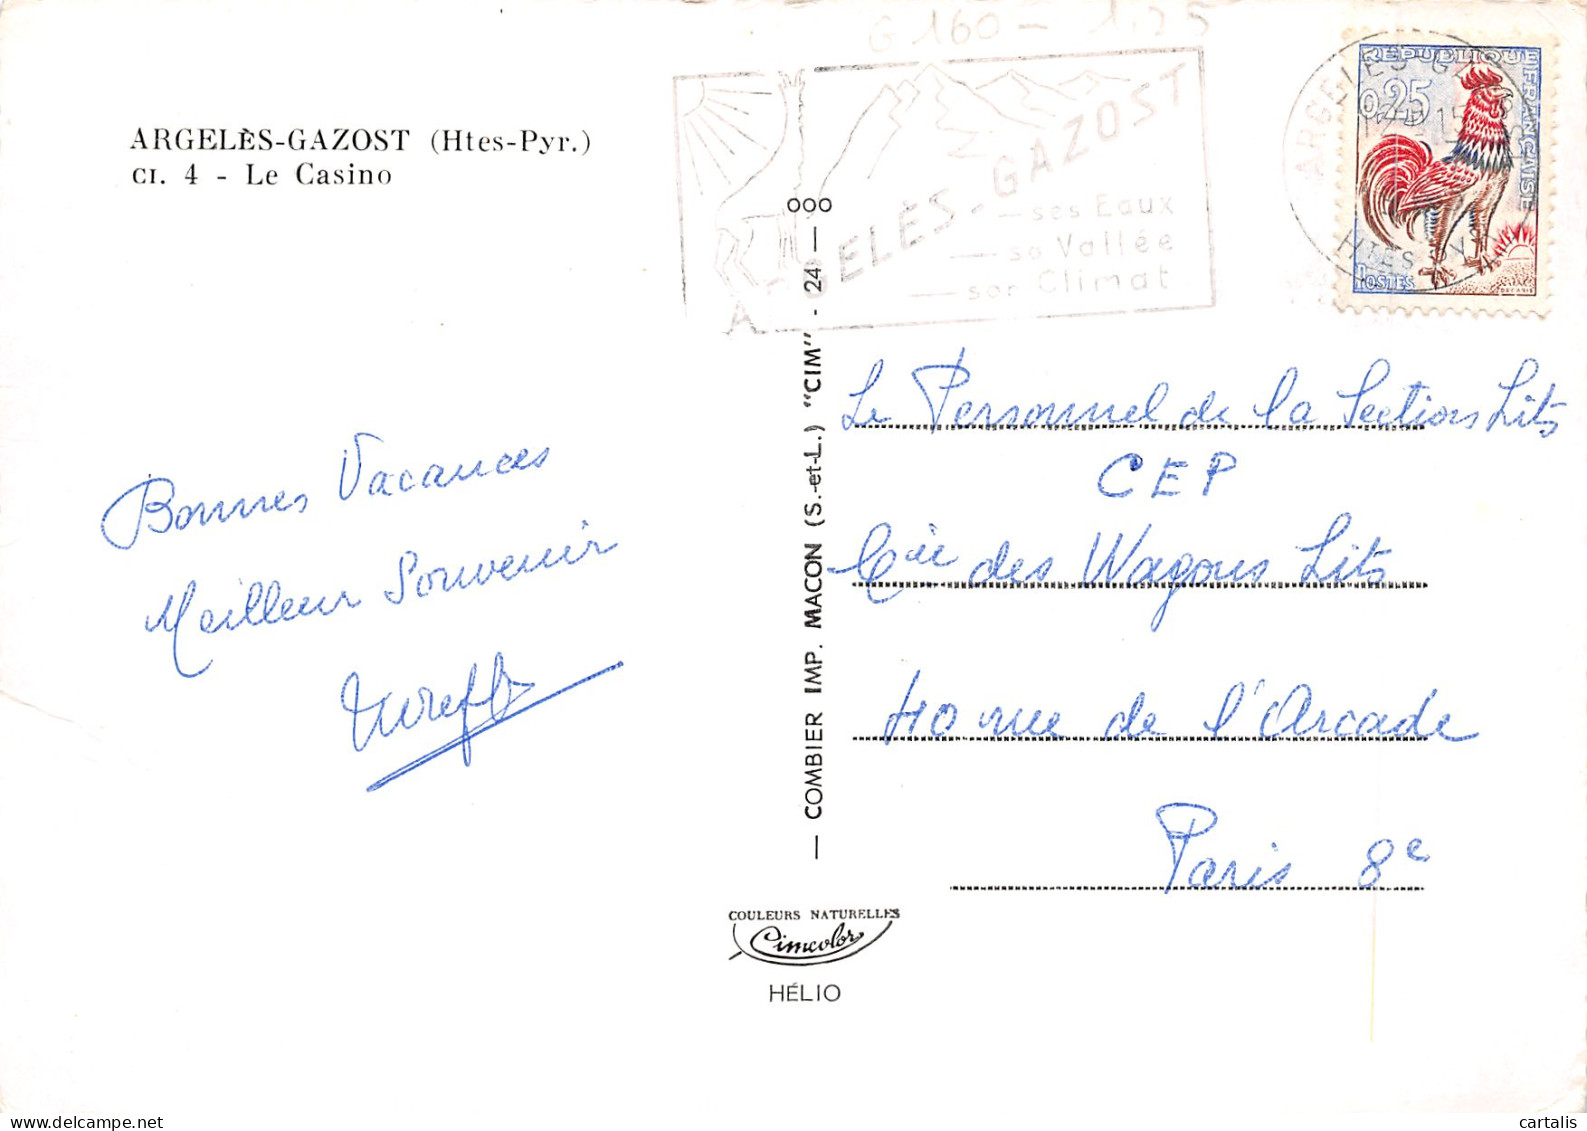 G 160 - 1,25
ARGELÈS-GAZOST (Htes-Pyr.)
CI. 4 - Le Casino
ARGELÈS-GAZOST
ses Eaux
sa Vallée
son Climat
ARGELES GAZOST
HTES PYR
RÉPUBLIQUE FRANÇAISE
0,25
POSTES
Bonnes Vacances
Meilleur Souvenir
Le Personnel de la Section Lits
CEP
Cie des Wagons Lits
40 rue de l'Arcade
Paris 8e
— COMBIER IMP. MACON (S.-et-L.) "CIM" - 24 —
ooo
COULEURS NATURELLES
Cimcolor
HÉLIO
cartalis